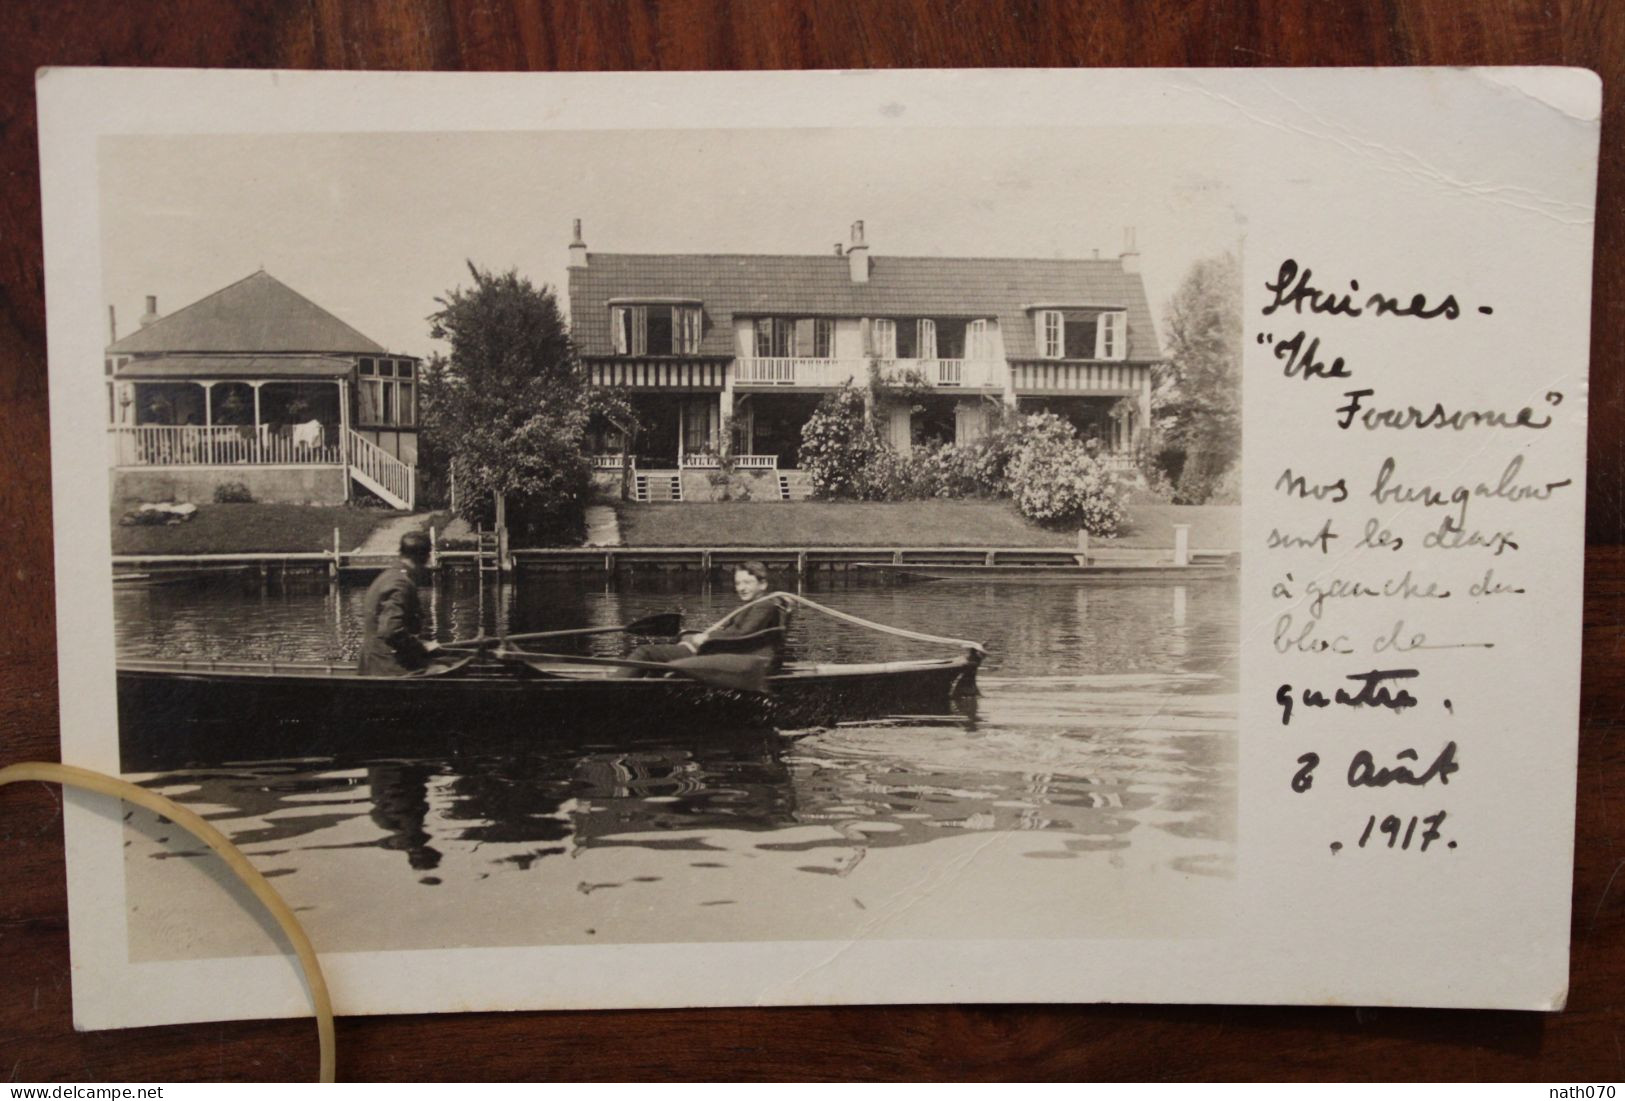 Staines -
"The
Foursome"
nos bungalow
sont les deux
à gauche du
bloc de
quatre.
2 Août
. 1917.
© delcampe.net
nath070